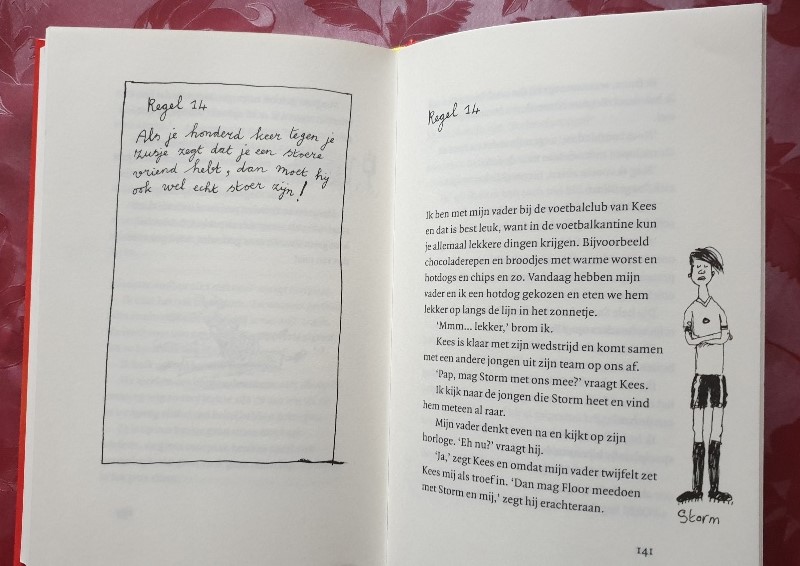 Regel 14
Als je honderd keer tegen je
zusje zegt dat je een stoere
vriend hebt, dan moet hij
ook wel echt stoer zijn!
Regel 14
Ik ben met mijn vader bij de voetbalclub van Kees
en dat is best leuk, want in de voetbalkantine kun
je allemaal lekkere dingen krijgen. Bijvoorbeeld
chocoladerepen en broodjes met warme worst en
hotdogs en chips en zo. Vandaag hebben mijn
vader en ik een hotdog gekozen en eten we hem
lekker op langs de lijn in het zonnetje.
‘Mmm... lekker,’ brom ik.
Kees is klaar met zijn wedstrijd en komt samen
met een andere jongen uit zijn team op ons af.
‘Pap, mag Storm met ons mee?’ vraagt Kees.
Ik kijk naar de jongen die Storm heet en vind
hem meteen al raar.
Mijn vader denkt even na en kijkt op zijn
horloge. ‘Eh nu?’ vraagt hij.
‘Ja,’ zegt Kees en omdat mijn vader twijfelt zet
Kees mij als troef in. ‘Dan mag Floor meedoen
met Storm en mij,’ zegt hij erachteraan.
Storm
141